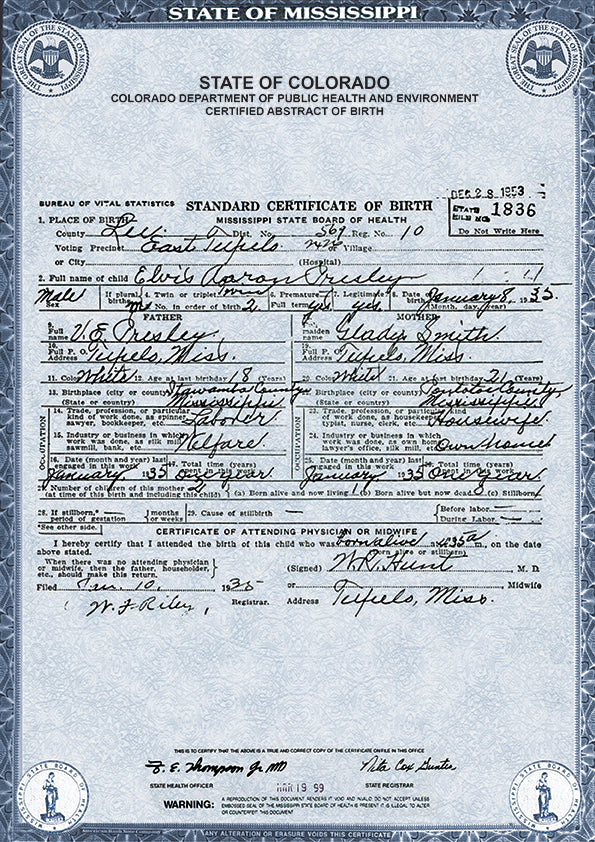 STATE OF MISSISSIPPI
THE GREAT SEAL OF THE STATE OF MISSISSIPPI
THE GREAT SEAL OF THE STATE OF MISSISSIPPI
STATE OF COLORADO
COLORADO DEPARTMENT OF PUBLIC HEALTH AND ENVIRONMENT
CERTIFIED ABSTRACT OF BIRTH
DEC 28 1953
BUREAU OF VITAL STATISTICS STANDARD CERTIFICATE OF BIRTH
STATE FILE NO. 1836
1. PLACE OF BIRTH MISSISSIPPI STATE BOARD OF HEALTH
Do Not Write Here
County Lee Dist. No. 569 Reg. No. 10
Voting Precinct East Tupelo or Village
or City (Hospital)
2. Full name of child Elvis Aaron Presley
Male Sex If plural births 4. Twin or triplet twin No. in order of birth 2 6. Premature Full term yes 7. Legitimate? yes 8. Date of birth January 8, 1935.
FATHER MOTHER
9. Full name V. E. Presley Full maiden name Gladys Smith
10. Full P. O. Address Tupelo, Miss. 19. Full P. O. Address Tupelo, Miss.
11. Color White 12. Age at last birthday 18 (Years) 20. Color White 21. Age at last birthday 21 (Years)
13. Birthplace (city or county) Itawamba County 22. Birthplace (city or county) Pontotoc County
(State or country) Mississippi (State or country) Mississippi
OCCUPATION
14. Trade, profession, or particular kind of work done, as spinner, sawyer, bookkeeper, etc. Laborer 23. Trade, profession, or particular kind of work done, as housekeeper, typist, nurse, clerk, etc. Housewife
15. Industry or business in which work was done, as silk mill, sawmill, bank, etc. Welfare 24. Industry or business in which work was done, as own home, lawyer's office, silk mill, etc. Own Home
16. Date (month and year) last engaged in this work January 1935 17. Total time (years) spent in this work One year 25. Date (month and year) last engaged in this work January 1935 Total time (years) spent in this work One year
27. Number of children of this mother (at time of this birth and including this child) (a) Born alive and now living 1 (b) Born alive but now dead (c) Stillborn
28. If stillborn,* period of gestation months or weeks 29. Cause of stillbirth Before labor During Labor
*See other side. CERTIFICATE OF ATTENDING PHYSICIAN OR MIDWIFE
I hereby certify that I attended the birth of this child who was born alive at 4:35 a m., on the date
above stated. (Born alive or stillborn)
When there was no attending physician or midwife, then the father, householder, etc., should make this return. (Signed) W. R. Hunt M. D.
or Midwife
Filed Jan. 10, 1935
W. F. Riley, Registrar. Address Tupelo, Miss.
THIS IS TO CERTIFY THAT THE ABOVE IS A TRUE AND CORRECT COPY OF THE CERTIFICATE ON FILE IN THIS OFFICE
F. E. Thompson Jr MD Nita Cox Gunter
STATE HEALTH OFFICER MAR 19 99 STATE REGISTRAR
WARNING: A REPRODUCTION OF THIS DOCUMENT RENDERS IT VOID AND INVALID. DO NOT ACCEPT UNLESS
EMBOSSED SEAL OF THE MISSISSIPPI STATE BOARD OF HEALTH IS PRESENT. IT IS ILLEGAL TO ALTER
OR COUNTERFEIT THIS DOCUMENT
MISSISSIPPI STATE BOARD OF HEALTH
MISSISSIPPI STATE BOARD OF HEALTH
ANY ALTERATION OR ERASURE VOIDS THIS CERTIFICATE